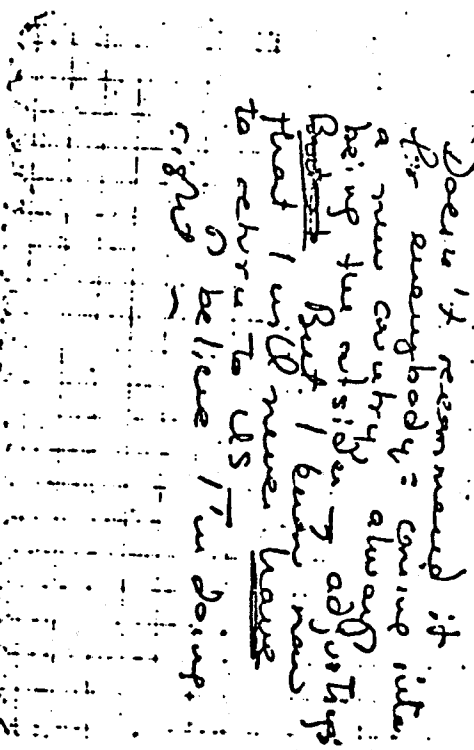 Doesn't recommend it
for everybody = coming into
a new country always
being the outsider & adjusting.
But I know now
that I will never have
to return to US
I believe I'm doing.
right –